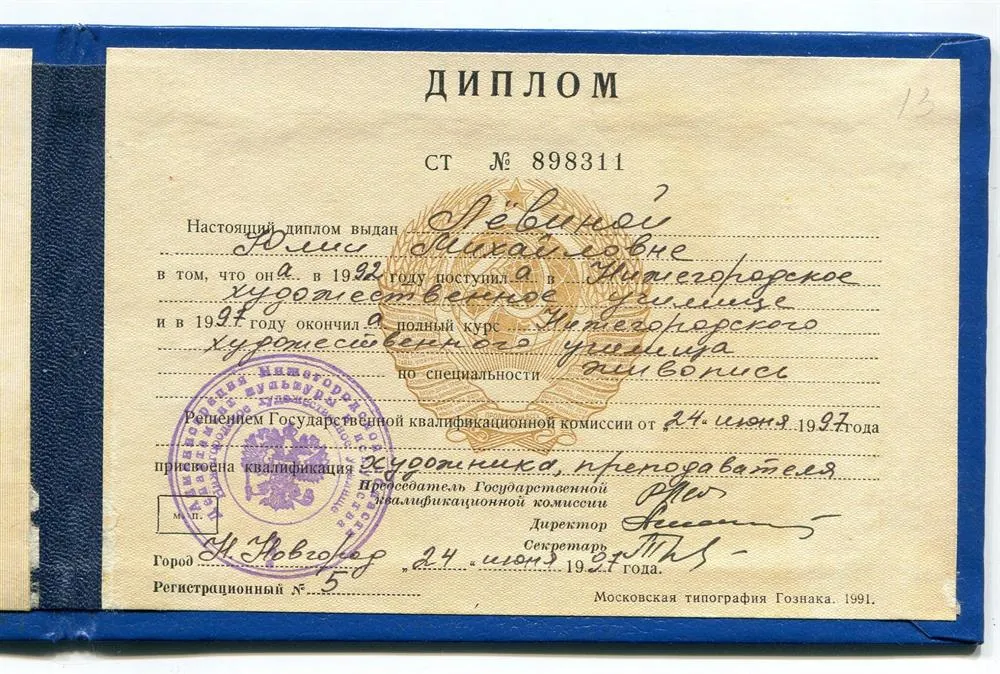 ДИПЛОМ
13
СТ № 898311
Настоящий диплом выдан Лёвиной
Юлии Михайловне
в том, что она в 1992 году поступила в Нижегородское
художественное училище
и в 1997 году окончила полный курс Нижегородского
художественного училища
по специальности живопись
Решением Государственной квалификационной комиссии от „24“ июня 1997 года
присвоена квалификация художника, преподавателя
Председатель Государственной
квалификационной комиссии
Директор
Секретарь
м. п.
Город Н. Новгород „24“ июня 1997 года.
Регистрационный № 5
Московская типография Гознака. 1991.
Администрация Нижегородской области
Департамент культуры и искусства
Нижегородское художественное училище